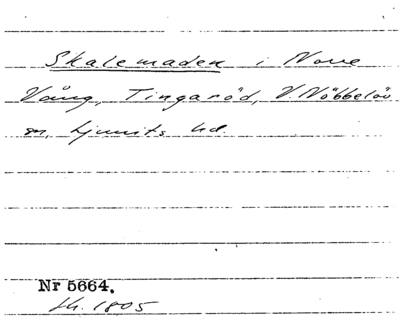 Skalemaden i Norre
Vång, Tingaröd, V. Nöbbelöv
sn, Ljunits hd.
Nr 5664.
sk. 1805